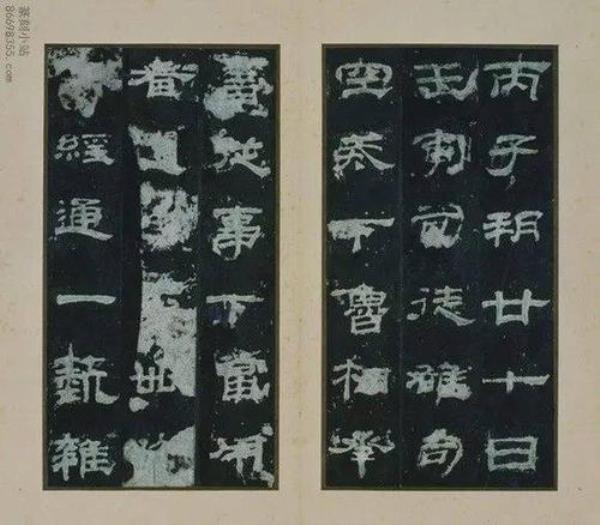 丙子朔廿七日
壬寅司徒雄司
空戒下魯相承
書從事下當用
者卌
經通一藝雜
篆刻小站
86698355.com